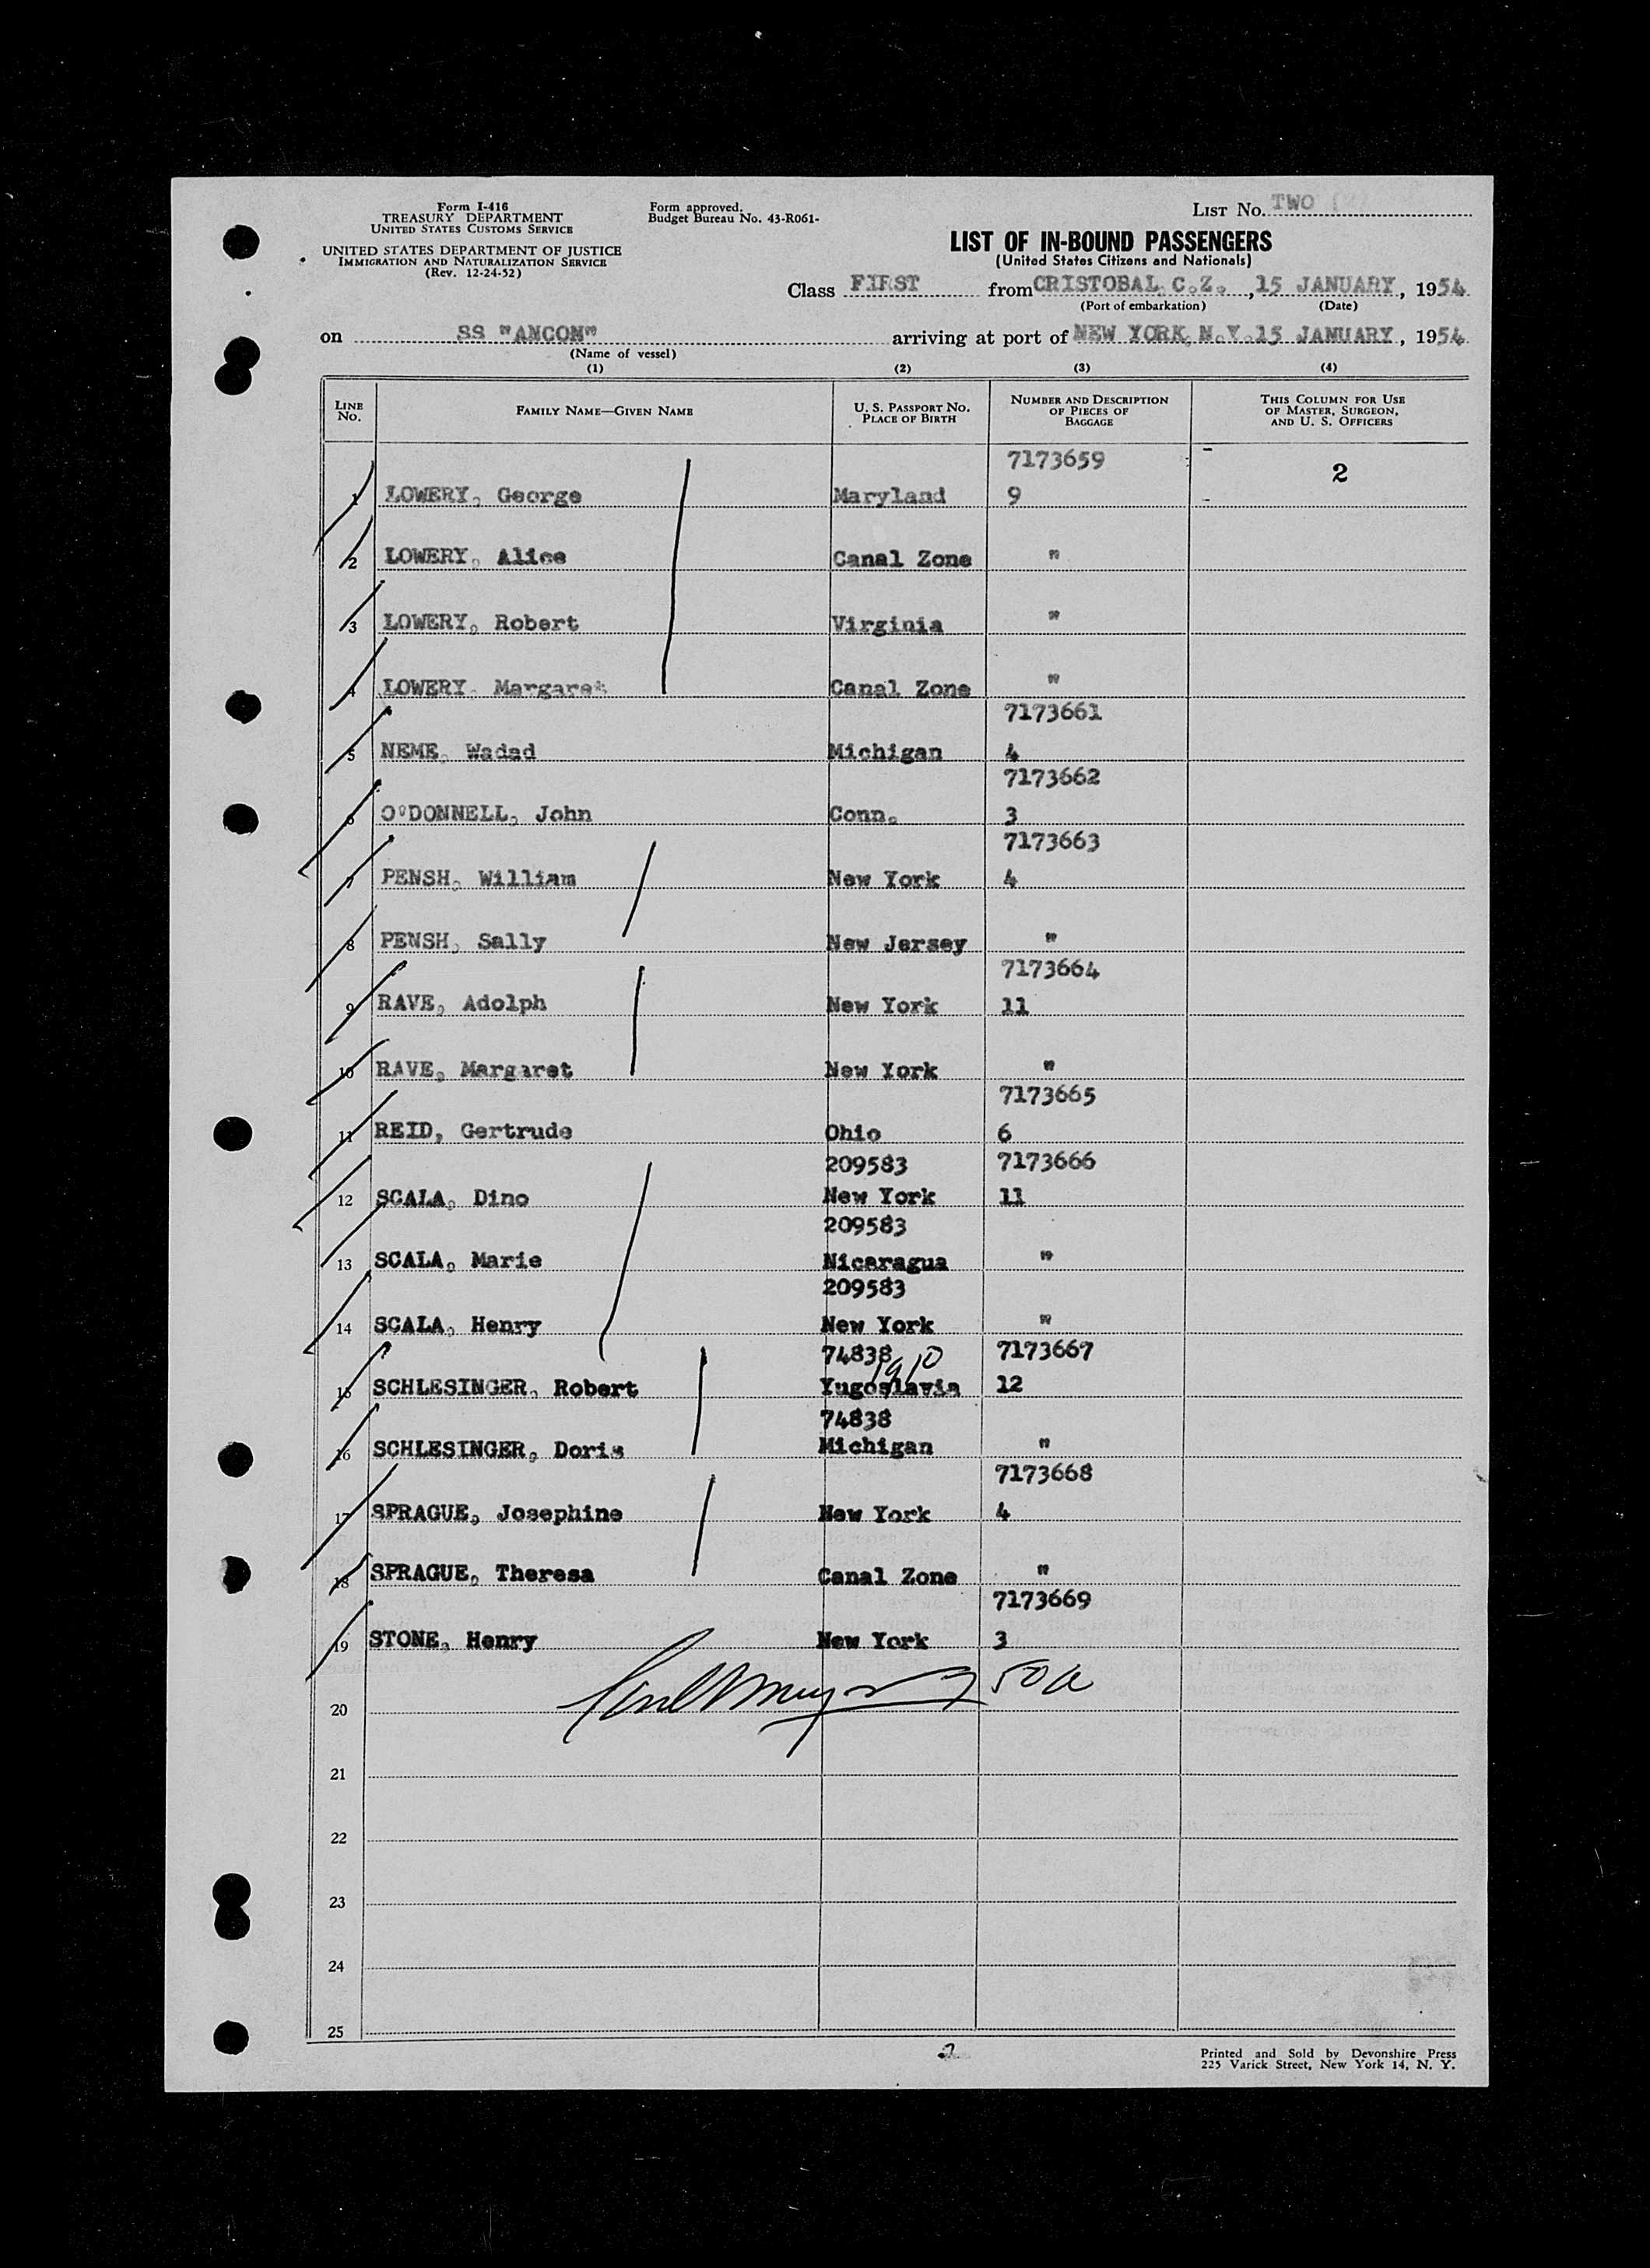 Form I-416
TREASURY DEPARTMENT
UNITED STATES CUSTOMS SERVICE
UNITED STATES DEPARTMENT OF JUSTICE
IMMIGRATION AND NATURALIZATION SERVICE
(Rev. 12-24-52)
Form approved.
Budget Bureau No. 43-R061-
LIST No. TWO (2)
LIST OF IN-BOUND PASSENGERS
(United States Citizens and Nationals)
Class FIRST from CRISTOBAL, C.Z. , 15 JANUARY, 1954
(Port of embarkation) (Date)
on SS "ANCON" arriving at port of NEW YORK, N.Y. 15 JANUARY, 1954
(Name of vessel)
(1) (2) (3) (4)
LINE No. FAMILY NAME—GIVEN NAME U. S. PASSPORT No. PLACE OF BIRTH NUMBER AND DESCRIPTION OF PIECES OF BAGGAGE THIS COLUMN FOR USE OF MASTER, SURGEON, AND U. S. OFFICERS
7173659 2
1 LOWERY, George Maryland 9
2 LOWERY, Alice Canal Zone "
3 LOWERY, Robert Virginia "
4 LOWERY, Margaret Canal Zone "
7173661
5 NEME, Wadad Michigan 4
7173662
6 O'DONNELL, John Conn. 3
7173663
7 PENSH, William New York 4
8 PENSH, Sally New Jersey "
7173664
9 RAVE, Adolph New York 11
10 RAVE, Margaret New York "
7173665
11 REID, Gertrude Ohio 6
209583 7173666
12 SCALA, Dino New York 11
209583
13 SCALA, Marie Nicaragua "
209583
14 SCALA, Henry New York "
74838 1910 7173667
15 SCHLESINGER, Robert Yugoslavia 12
74838
16 SCHLESINGER, Doris Michigan "
7173668
17 SPRAGUE, Josephine New York 4
18 SPRAGUE, Theresa Canal Zone "
7173669
19 STONE, Henry New York 3
20
21
22
23
24
25
2
Printed and Sold by Devonshire Press
225 Varick Street, New York 14, N. Y.